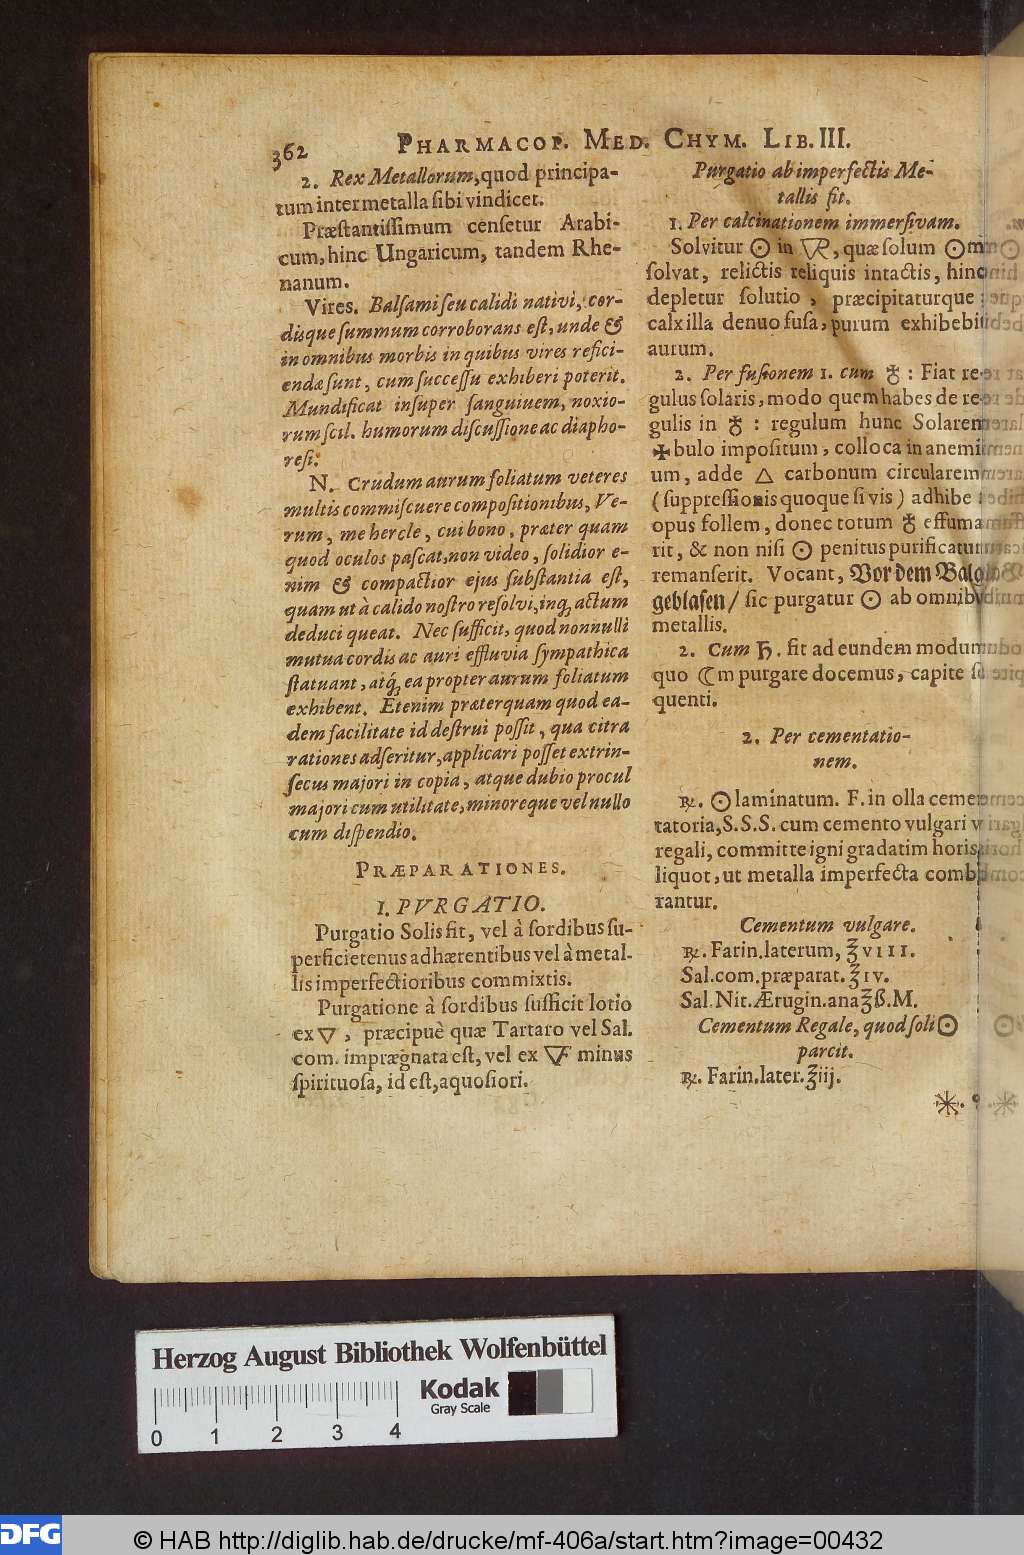 362 PHARMACOP. MED. CHYM. LIB. III.
2. Rex Metallorum, quod principa-
tum inter metalla sibi vindicet.
Præstantissimum censetur Arabi-
cum, hinc Ungaricum, tandem Rhe-
nanum.
Vires. Balsami seu calidi nativi, cor-
disque summum corroborans est, unde &
in omnibus morbis in quibus vires refici-
endæ sunt, cum successu exhiberi poterit.
Mundificat insuper sanguiuem, noxio-
rum scil. humorum discussione ac diapho-
resi.
N. Crudum aurum foliatum veteres
multis commiscuere compositionibus, Ve-
rum, me hercle, cui bono, præter quam
quod oculos pascat, non video, solidior e-
nim & compactior ejus substantia est,
quam ut à calido nostro resolvi, inq; actum
deduci queat. Nec sufficit, quod nonnulli
mutua cordis ac auri effluvia sympathica
statuant, atq́; ea propter aurum foliatum
exhibent. Etenim præterquam quod ea-
dem facilitate id destrui possit, qua citra
rationes adseritur, applicari posset extrin-
secus majori in copia, atque dubio procul
majori cum utilitate, minoreque vel nullo
cum dispendio.
PRÆPARATIONES.
I. PVRGATIO.
Purgatio Solis fit, vel à sordibus su-
perficietenus adhærentibus vel à metal-
lis imperfectioribus commixtis.
Purgatione à sordibus sufficit lotio
ex 🜄, præcipuè quæ Tartaro vel Sal.
com. imprægnata est, vel ex 🜅 minus
spirituosa, id est, aquosiori.
Purgatio ab imperfectis Me-
tallis fit.
1. Per calcinationem immersivam.
Solvitur ☉ in 🜆, quæ solum ☉m
solvat, relictis reliquis intactis, hinc
depletur solutio, præcipitaturque:
calx illa denuo fusa, purum exhibebit
aurum.
2. Per fusionem 1. cum ♁: Fiat re-
gulus solaris, modo quem habes de re-
gulis in ♁: regulum hunc Solarem
✠bulo impositum, colloca in anemi
um, adde 🜂 carbonum circularem
(suppressionis quoque si vis) adhibe
opus follem, donec totum ♁ effuma
rit, & non nisi ☉ penitus purificatum
remanserit. Vocant, Vor dem Balg
geblasen / sic purgatur ☉ ab omnib9
metallis.
2. Cum ♄. fit ad eundem modum
quo ☾m purgare docemus, capite se
quenti.
2. Per cementatio-
nem.
℞. ☉ laminatum. F. in olla cemen
tatoria, S.S.S. cum cemento vulgari v
regali, committe igni gradatim horis
liquot, ut metalla imperfecta comb
rantur.
Cementum vulgare.
℞. Farin. laterum, ℥ VIII.
Sal. com. præparat. ℥ IV.
Sal. Nit. Ærugin. ana ℥ß. M.
Cementum Regale, quod soli ☉
parcit.
℞. Farin. later. ℥iij.
Herzog August Bibliothek Wolfenbüttel
Kodak
Gray Scale
0 1 2 3 4
DFG © HAB http://diglib.hab.de/drucke/mf-406a/start.htm?image=00432